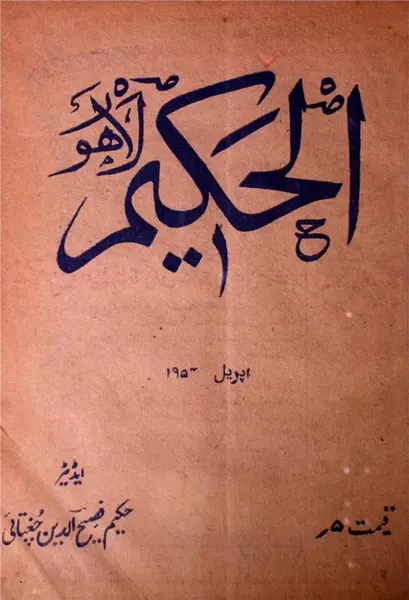 الحکیم
لاہور
اپریل ۱۹۵۳
ایڈیٹر
حکیم فصیح الدین چغتائی
قیمت ۵؍